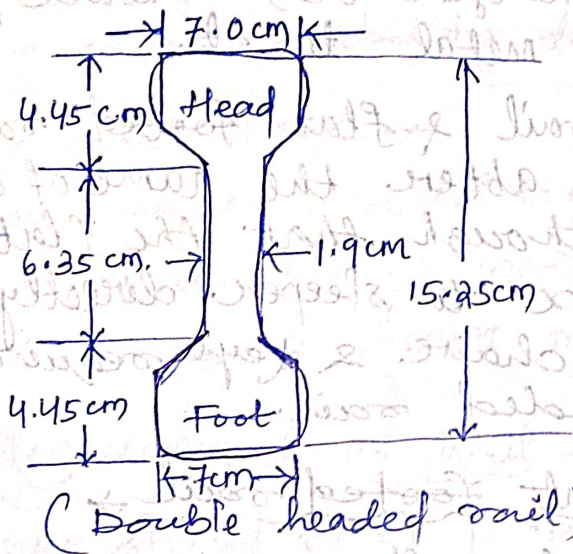 7.0cm
4.45 cm
Head
6.35 cm.
1.9cm
15.25cm
4.45cm
Foot
7cm
(Double headed rail)